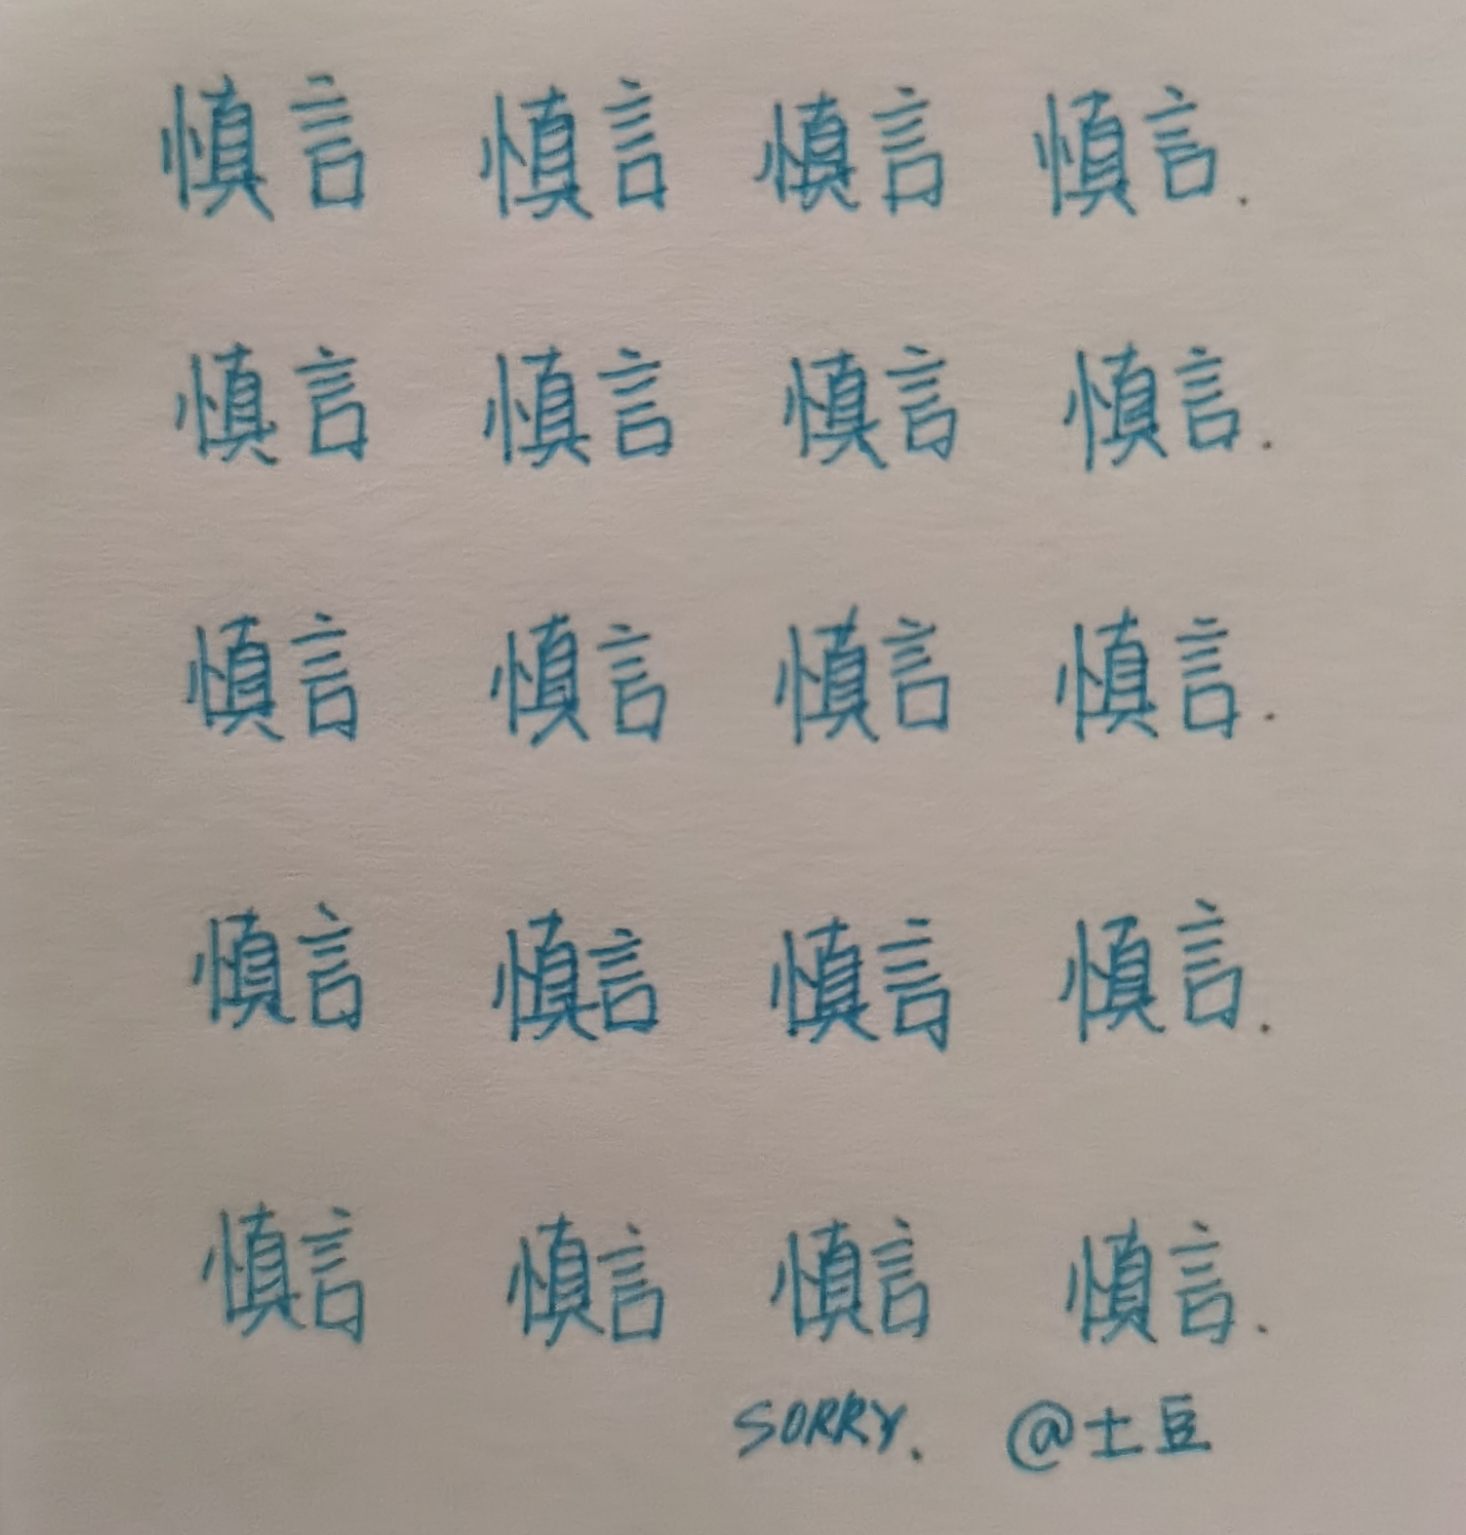 慎言 慎言 慎言 慎言.
慎言 慎言 慎言 慎言.
慎言 慎言 慎言 慎言.
慎言 慎言 慎言 慎言.
慎言 慎言 慎言 慎言.
SORRY. @土豆